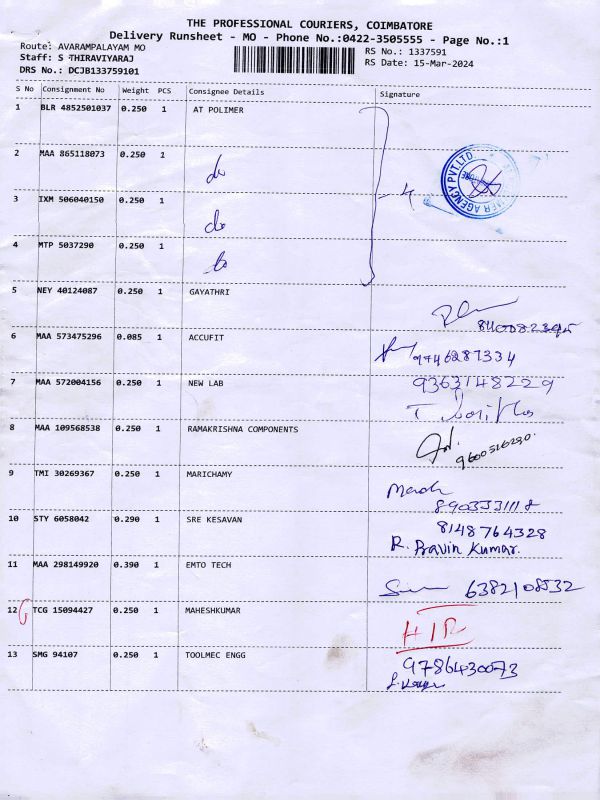 THE PROFESSIONAL COURIERS, COIMBATORE
Delivery Runsheet - MO - Phone No.:0422-3505555 - Page No.:1
Route: AVARAMPALAYAM MO
RS No.: 1337591
Staff: S THIRAVIYARAJ
RS Date: 15-Mar-2024
DRS No.: DCJB133759101
S No Consignment No Weight PCS Consignee Details Signature
1 BLR 4852501037 0.250 1 AT POLIMER
2 MAA 865118073 0.250 1 do
3 IXM 506040150 0.250 1 do
4
4 MTP 5037290 0.250 1
5 NEY 40124087 0.250 1 GAYATHRI
6 MAA 573475296 0.085 1 ACCUFIT
9746287334
7 MAA 572004156 0.250 1 NEW LAB 9363148229
8 MAA 109568538 0.250 1 RAMAKRISHNA COMPONENTS
9600516290.
9 TMI 30269367 0.250 1 MARICHAMY
10 STY 6058042 0.290 1 SRE KESAVAN 8148764328
R. Pravin Kumar.
11 MAA 298149920 0.390 1 EMTO TECH
6382108532
12 TCG 15094427 0.250 1 MAHESHKUMAR
13 SMG 94107 0.250 1 TOOLMEC ENGG 9786430073